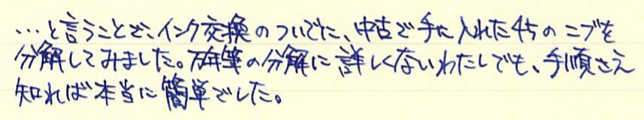 …と言うことで、インク交換のついでに、中古で手に入れた45のニブを
分解してみました。万年筆の分解に詳しくないわたしでも、手順さえ
知れば本当に簡単でした。